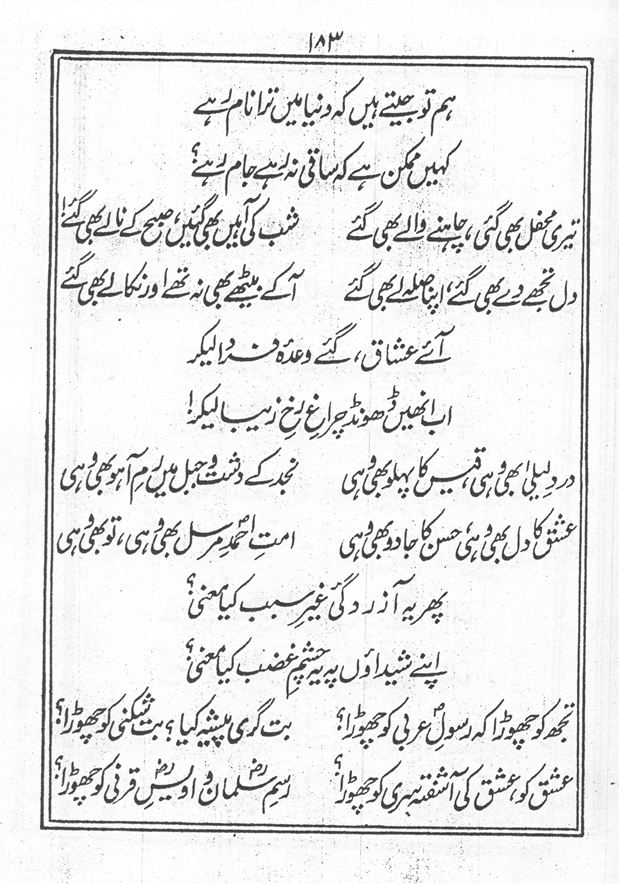 ۱۸۳
ہم تو جیتے ہیں کہ دنیا میں ترا نام رہے
کہیں ممکن ہے کہ ساقی نہ رہے جام رہے؟
تیری محفل بھی گئی، چاہنے والے بھی گئے شب کی آہیں بھی گئیں، صبح کے نالے بھی گئے!
دل تجھے دے بھی گئے، اپنا صلہ لے بھی گئے آ کے بیٹھے بھی نہ تھے اور نکالے بھی گئے
آئے عشاق، گئے وعدۂ فردا لیکر
اب انھیں ڈھونڈ چراغِ رخِ زیبا لیکر!
دردِ لیلیٰ بھی وہی، قیس کا پہلو بھی وہی نجد کے دشت و جبل میں رمِ آہو بھی وہی
عشق کا دل بھی وہی، حسن کا جادو بھی وہی امتِ احمدِؐ مرسل بھی وہی، تو بھی وہی
پھر یہ آزردگیِ غیرِ سبب کیا معنی؟
اپنے شیداؤں پہ یہ چشمِ غضب کیا معنی؟
تجھ کو چھوڑا کہ رسولِؐ عربی کو چھوڑا؟ بت گری پیشہ کیا؟ بت شکنی کو چھوڑا؟
عشق کو، عشق کی آشفتہ سری کو چھوڑا؟ رسمِ سلمانؓ و اویسؓ قرنی کو چھوڑا؟